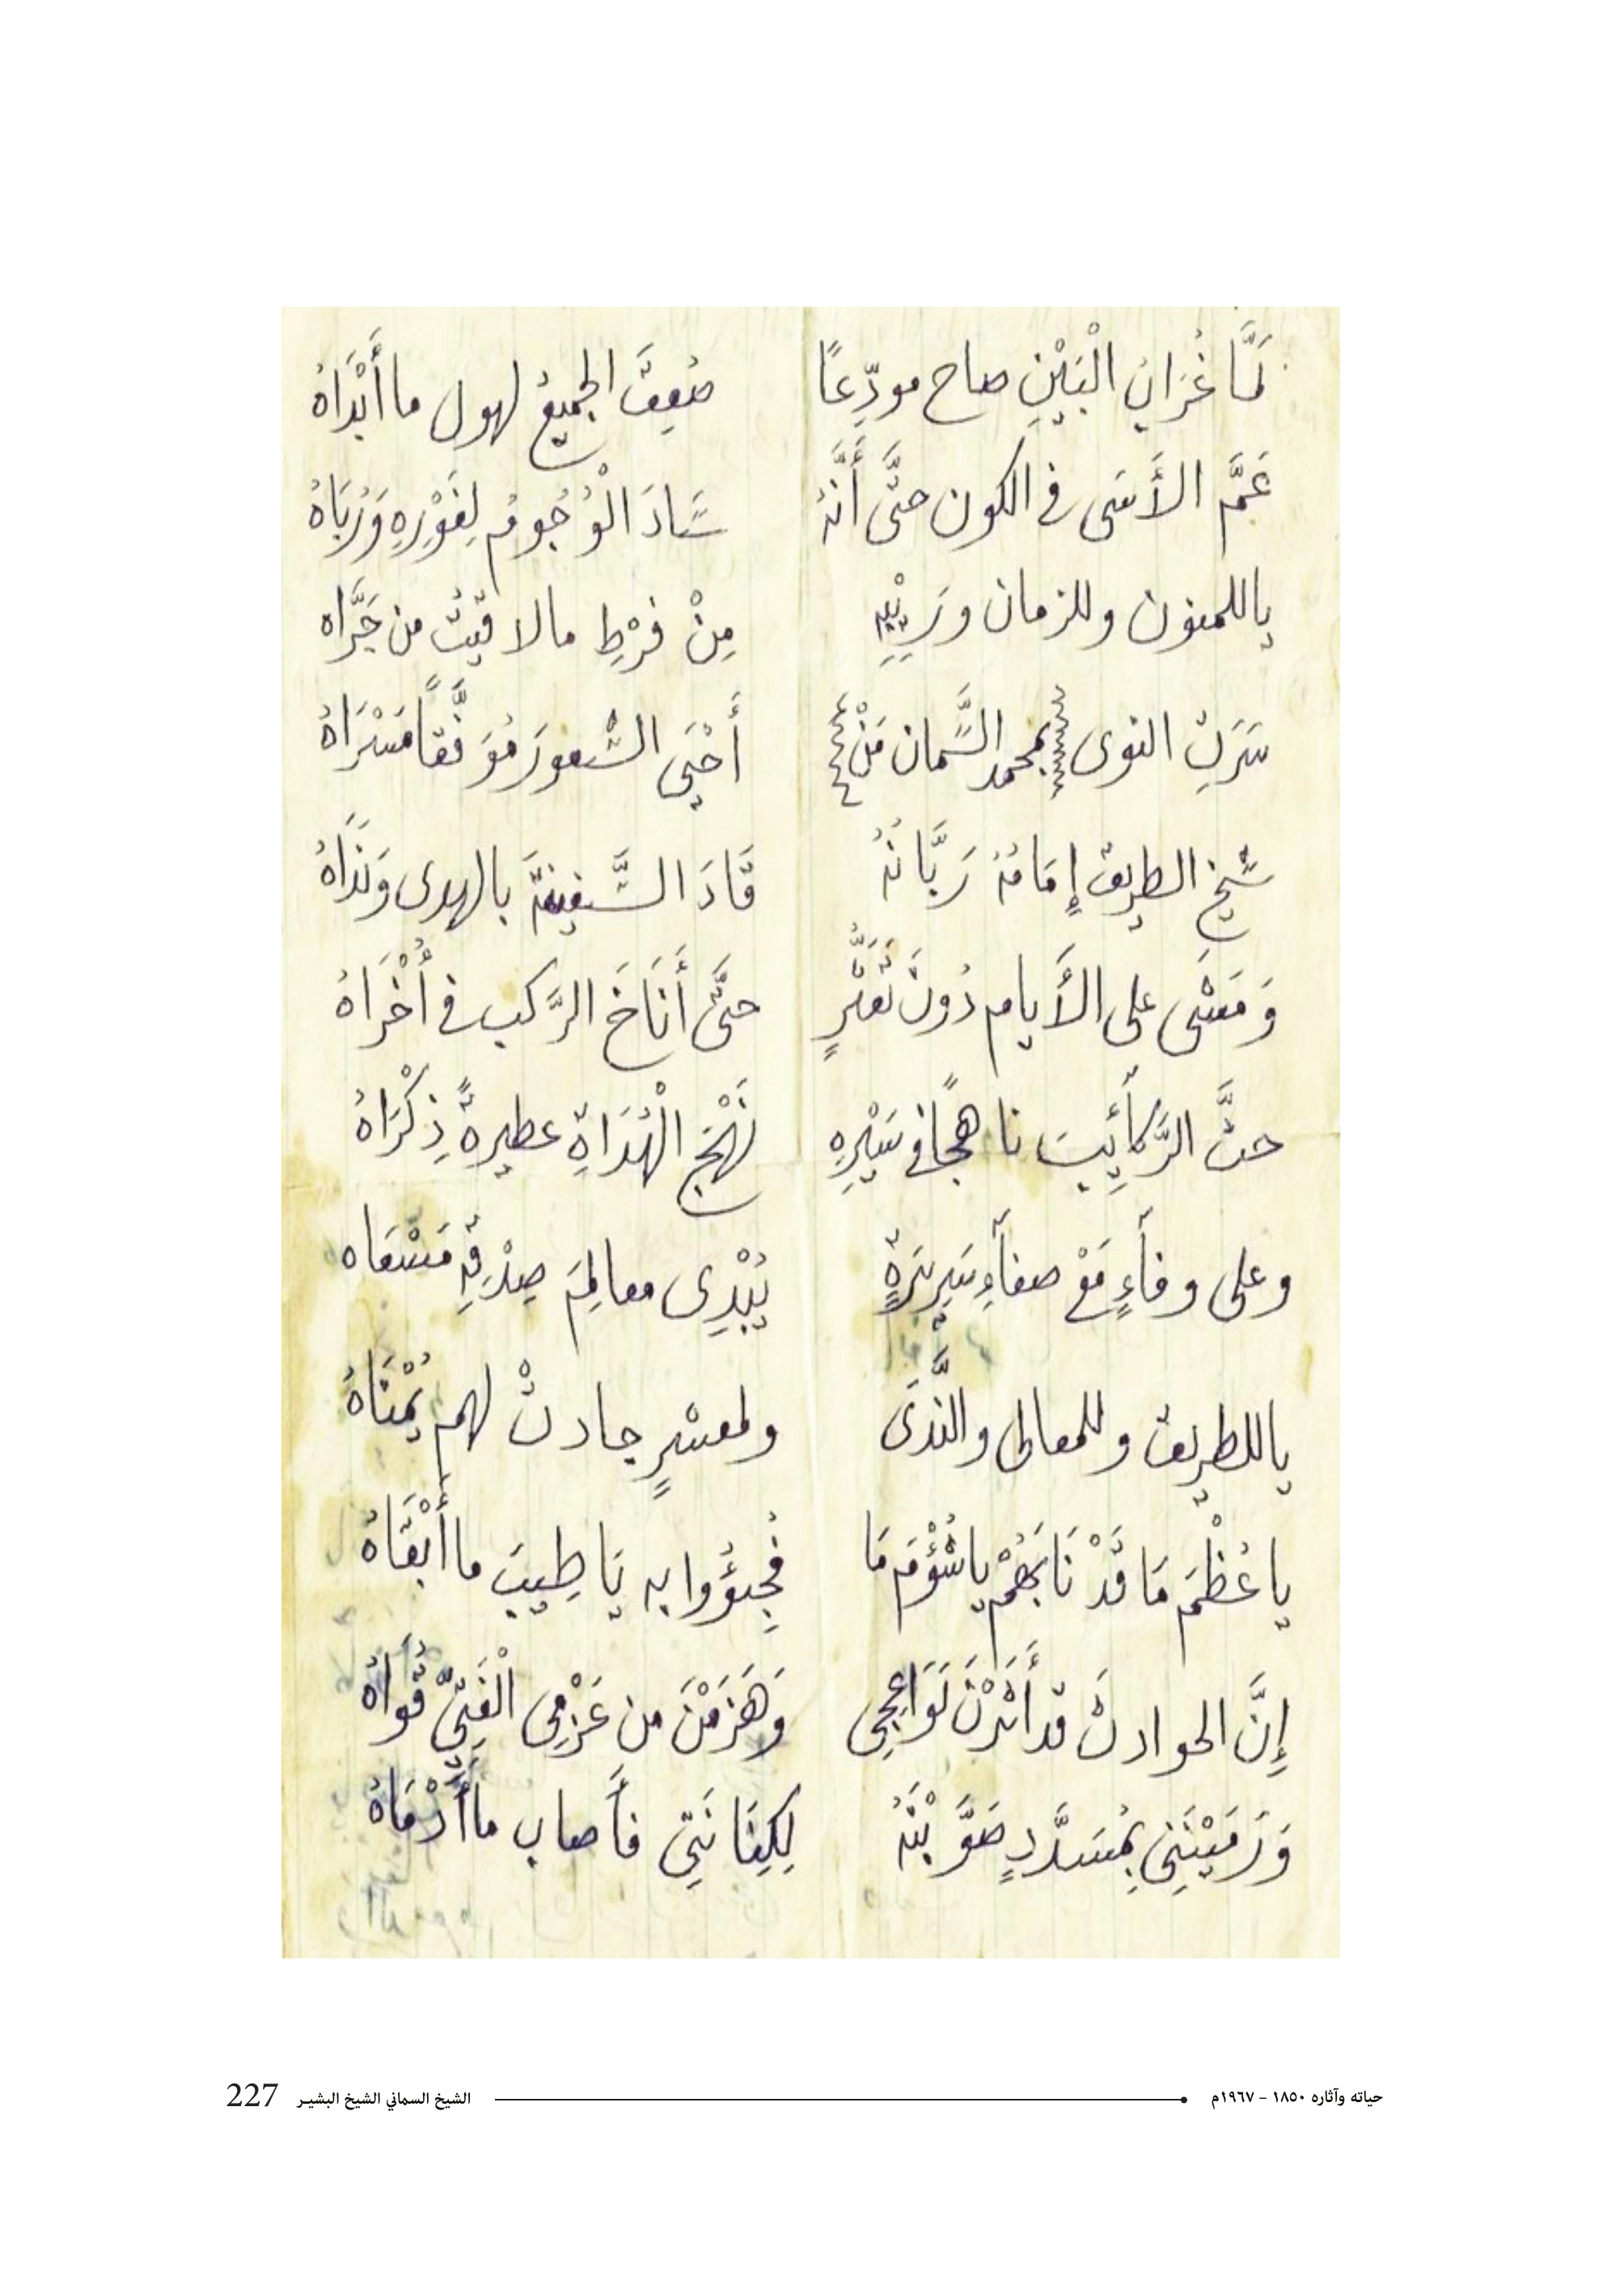 لَمَّا غُرَابُ الْبَيْنِ صاح مودِّعًا صُعِقَ الجميعُ لهول ما أَبْدَاهُ
عَمَّ الأَسَى في الكون حتَّى أَنَّهُ سَادَ الْوُجُومُ لِغَوْرِهِ وَرُبَاهُ
ياللمنون وللزمان ورَيْبِهِ مِنْ فَرْطِ مالاقيتُ من جَرَّاه
سَرَتِ النوى بمحمد السَّمان مَنْ أَحْيَى الشُّعورَ مُوَفَّقًا مَسْرَاهُ
شيخ الطريق إِمَامُهُ رَبَّانُهُ قَادَ السَّفِينَةَ بالهدى وَنَدَاهُ
وَمَشَى على الأَيام دُونَ تَعَثُّرٍ حتَّى أَنَاخَ الرَّكب في أُخْرَاهُ
حثَّ الرَّكآئِبَ ناهجًا في سَيْرِهِ نَهْجَ الْهُدَاةِ عطيرةً ذِكْرَاهُ
وعلى وفآءٍ مَعْ صفآءِ سَرِيرَةٍ يُبْدِى معالِمَ صِدْقِهِ مَسْعَاه
ياللطريق وللمعالى والنَّدَى ولمعسْرٍ جادتْ لهم يُمْنَاهُ
ياعُظْمَ مَا قَدْ نَابَهُمْ ياشُؤْمَ مَا فُجِئُوا به يَاطِيبَ ماأَبْقَاهُ
إِنَّ الحوادثَ قد أَثَرْنَ لَوَاعِجِى وَهَزَمْنَ من عَزْمِى الْفَتِىِّ قُوَاهُ
وَرَمَيْنَنِي بِمُسَدَّدٍ صَوَّبْنَهُ لِكِنَانَتِي فأَصاب ماأَدْمَاهُ
حياته وآثاره ١٨٥٠ - ١٩٦٧م الشيخ السماني الشيخ البشير 227